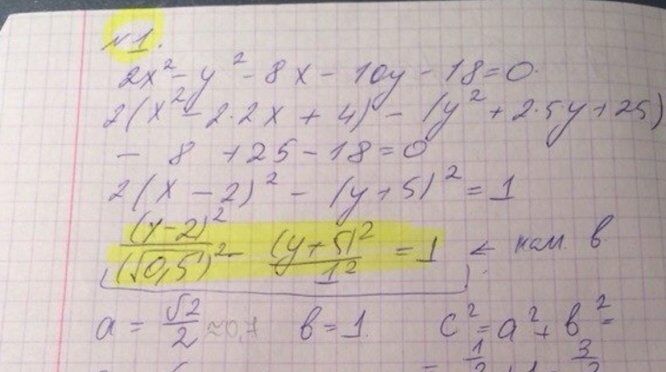 №1.
2x² - y² - 8x - 10y - 18 = 0.
2(x² - 2·2x + 4) - (y² + 2·5y + 25)
- 8 + 25 - 18 = 0
2(x - 2)² - (y + 5)² = 1
(x-2)²/(√0,5)² - (y+5)²/1² = 1 ←
a = √2/2 ≈ 0,7 b = 1 c² = a² + b² =